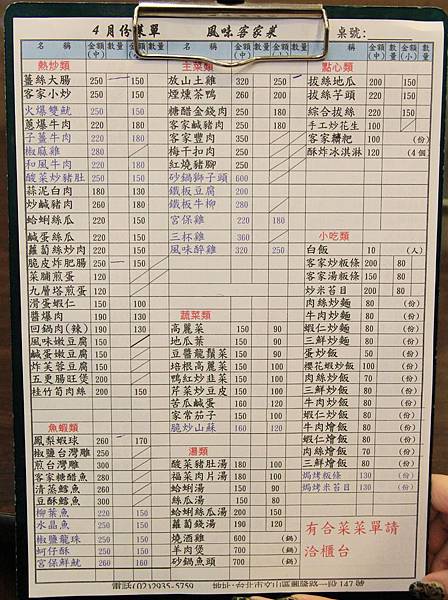 4月份菜單 風味客家菜 桌號:
名稱 金額(中) 數量 金額(小) 數量
熱炒類
薑絲大腸 250 150
客家小炒 250 150
火爆雙魷 250 150
蔥爆牛肉 220 180
子薑牛肉 220 180
椒麻雞 280
和風牛肉 220 180
酸菜炒肚絲 250 150
蒜泥白肉 180 130
炒鹹豬肉 260 180
蛤蜊絲瓜 220 150
鹹蛋絲瓜 220 150
蘿蔔絲炒肉 220 150
脆皮炸肥腸 250 150
菜脯煎蛋 120
九層塔煎蛋 120
滑蛋蝦仁 150 100
醬爆肉 190 130
回鍋肉(辣) 190 130
風味嫩豆腐 150
鹹蛋嫩豆腐 150
炸芙蓉豆腐 150
五更腸旺煲 200
桂竹筍肉絲 200 150
魚蝦類
鳳梨蝦球 260 170
椒鹽台灣鯛 250
煎台灣鯛 250
客家糖醋魚 280
清蒸鱈魚 260
豆酥鱈魚 260
柳葉魚 220 150
水晶魚 220 150
椒鹽龍珠 220 150
蚵仔酥 220 150
宮保鮮魷 260 160
名稱 金額(中) 數量 金額(小) 數量
主菜類
放山土雞 320 250
煙燻茶鴨 260
糖醋金錢肉 250 180
客家鹹豬肉 250 180
客家豐肉 350
梅干扣肉 250
紅燒豬腳 250
砂鍋獅子頭 600
鐵板豆腐 200
鐵板牛柳 280
宮保雞 220 180
三杯雞 360
風味醉雞 320 250
蔬菜類
高麗菜 150 90
地瓜葉 150 90
豆醬龍鬚菜 150 90
培根高麗菜 150 90
鴨紅炒韭菜 150 90
芹菜炒豆皮 150 90
苦瓜鹹蛋 160 120
家常茄子 150 100
脆炒山蘇 160 120
湯類
酸菜豬肚湯 180 100
福菜肉片湯 180 100
蛤蜊湯 150 90
絲瓜湯 150 80
蛤蜊絲瓜湯 200 150
蘿蔔錢湯 190 120
燒酒雞 600 (鍋)
羊肉煲 700 (鍋)
砂鍋魚頭 700 (鍋)
名稱 金額(中) 數量 金額(小) 數量
點心類
拔絲地瓜 200 150
拔絲芋頭 220 150
綜合拔絲 220 150
手工炒花生 100
客家糬粑 100 (份)
酥炸冰淇淋 120 (4個)
小吃類
白飯 10 (人)
客家炒粄條 200 80
客家湯粄條 150 80
炒米苔目 200 80
肉絲炒麵 80 (份)
牛肉炒麵 80 (份)
蝦仁炒麵 80 (份)
三鮮炒麵 80 (份)
蛋炒飯 50 (份)
櫻花蝦炒飯 100 (份)
肉絲炒飯 70 (份)
三鮮炒飯 80 (份)
牛肉炒飯 80 (份)
蝦仁炒飯 80 (份)
牛肉燴飯 80 (份)
肉絲燴飯 70 (份)
三鮮燴飯 80 (份)
焗烤粄條 130 (份)
焗烤米苔目 130 (份)
有合菜菜單請
洽櫃台
電話(02)2935-5759 地址:台北市文山區興隆路一段147號